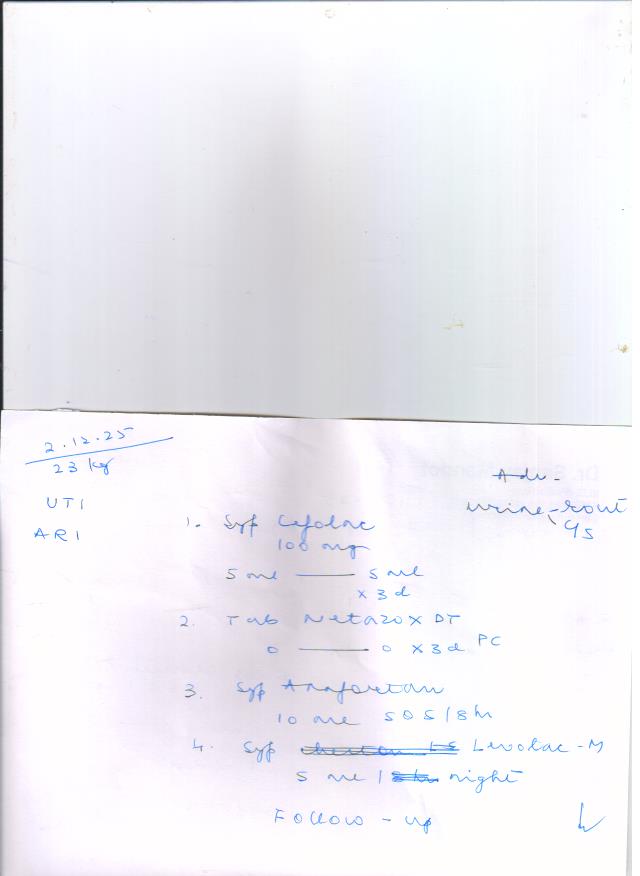 2.12.25
23 kg
UTI
ARI
Adv-
urine - rout
C/s
1. Syp Cefolac
100 mg
5 ml — 5 ml
x 3 d
2. Tab Netazox DT
0 — 0 x 3d PC
3. Syp Anafortan
10 ml SOS / 8 hr
4. Syp Levolac-M
5 ml / night
Follow-up